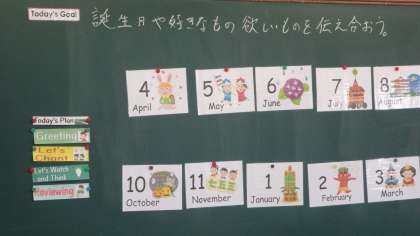 Today's Goal
誕生日や好きなもの欲しいものを伝え合おう。
4
April
5
May
6
June
7
July
8
August
Today's Plan
Greeting
Let's
Chant
Let's Watch
and Think
Reviewing
10
October
11
November
七五三
1
January
2
February
3
March